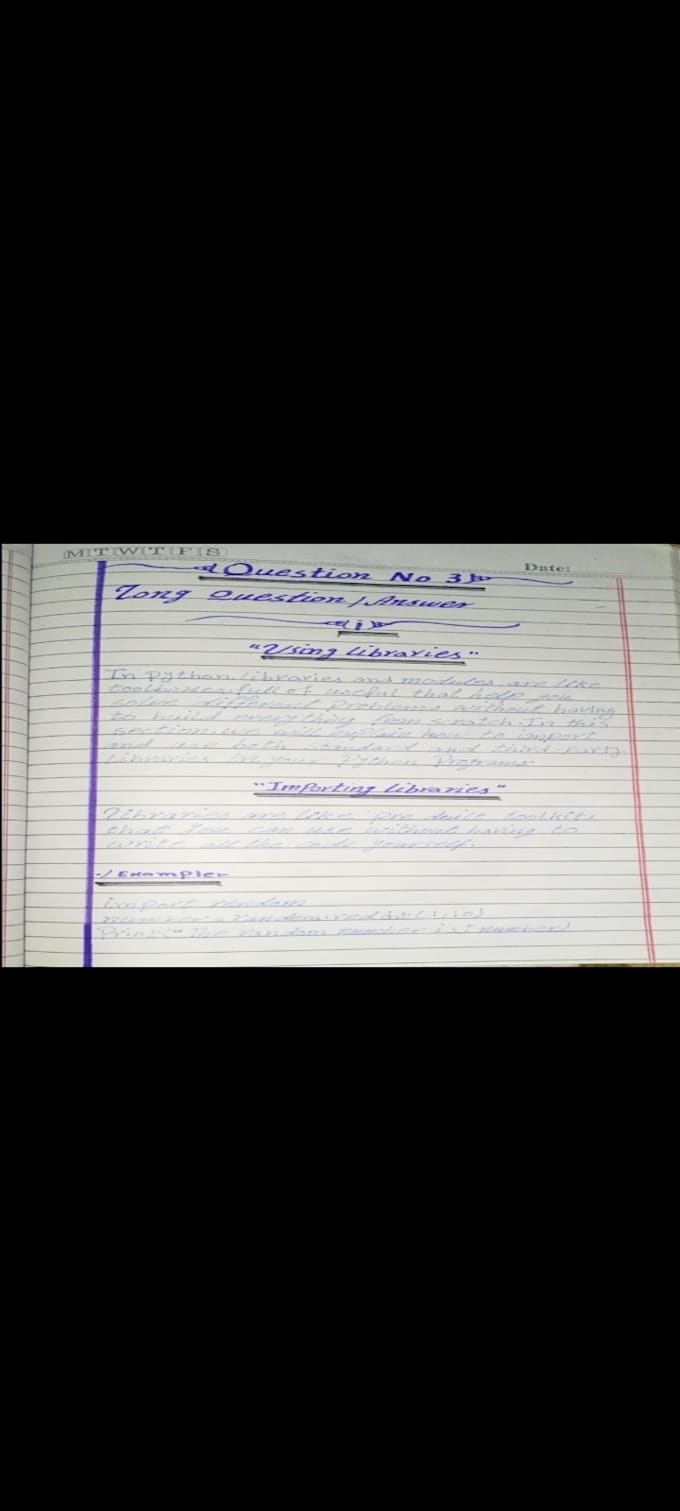 M T W T F S
Date:
Question No 3
Long Question / Answer
i
"Using Libraries"
In Python, libraries and modules are like
toolboxes full of useful that help you
solve different problems without having
to build everything from scratch. In this
section, we will explain how to import
and use both standard and third party
libraries in your Python Programs.
"Importing Libraries"
Libraries are like pre built toolkits
that you can use without having to
write all the code yourself.
Example
import random
number = random.
Print(" The random number is: number)